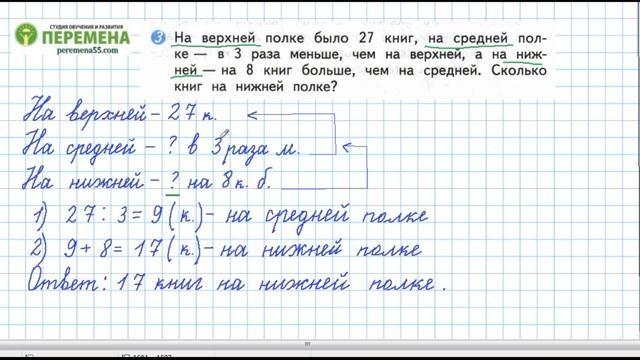 СТУДИЯ ОБУЧЕНИЯ И РАЗВИТИЯ
ПЕРЕМЕНА
peremena55.com
3 На верхней полке было 27 книг, на средней пол-
ке — в 3 раза меньше, чем на верхней, а на ниж-
ней — на 8 книг больше, чем на средней. Сколько
книг на нижней полке?
На верхней – 27 к.
На средней – ? в 3 раза м.
На нижней – ? на 8 к. б.
1) 27 : 3 = 9 (к.) – на средней полке
2) 9 + 8 = 17 (к.) – на нижней полке
Ответ: 17 книг на нижней полке.